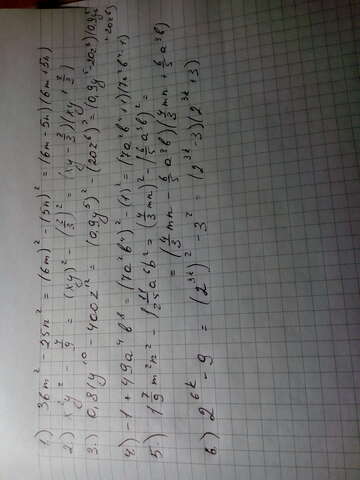 1.) 36m² - 25n² = (6m)² - (5n)² = (6m - 5n)(6m + 5n)
2.) x²y² - 4/9 = (xy)² - (2/3)² = (xy - 2/3)(xy + 2/3)
3.) 0,81y¹⁰ - 400z¹² = (0,9y⁵)² - (20z⁶)² = (0,9y⁵ - 20z⁶)(0,9y⁵
+ 20z⁶)
4.) -1 + 49a⁴b⁸ = (7a²b⁴)² - (1)² = (7a²b⁴ + 1)(7a²b⁴ - 1)
5.) 1 7/9 m²n² - 1 11/25 a⁶b² = (4/3 mn)² - (6/5 a³b)² =
= (4/3 mn - 6/5 a³b)(4/3 mn + 6/5 a³b)
6.) 2⁶ᵏ - 9 = (2³ᵏ)² - 3² = (2³ᵏ - 3)(2³ᵏ + 3)